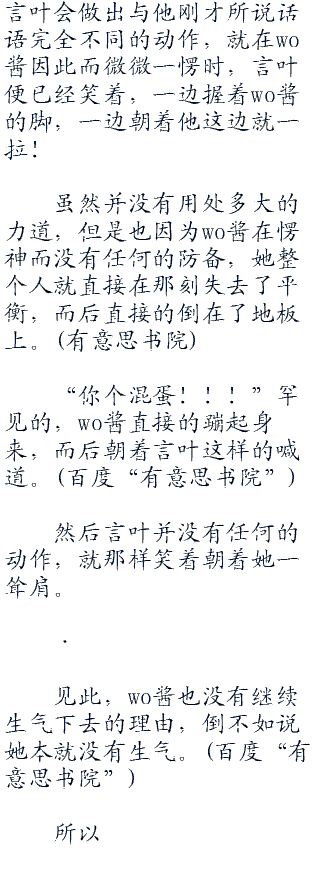 言叶会做出与他刚才所说话
语完全不同的动作，就在wo
酱因此而微微一愣时，言叶
便已经笑着，一边握着wo酱
的脚，一边朝着他这边就一
拉！
虽然并没有用处多大的
力道，但是也因为wo酱在愣
神而没有任何的防备，她整
个人就直接在那刻失去了平
衡，而后直接的倒在了地板
上。(有意思书院)
“你个混蛋！！！”罕
见的，wo酱直接的蹦起身
来，而后朝着言叶这样的喊
道。(百度“有意思书院”)
然后言叶并没有任何的
动作，就那样笑着朝着她一
耸肩。
.
见此，wo酱也没有继续
生气下去的理由，倒不如说
她本就没有生气。(百度“有
意思书院”)
所以